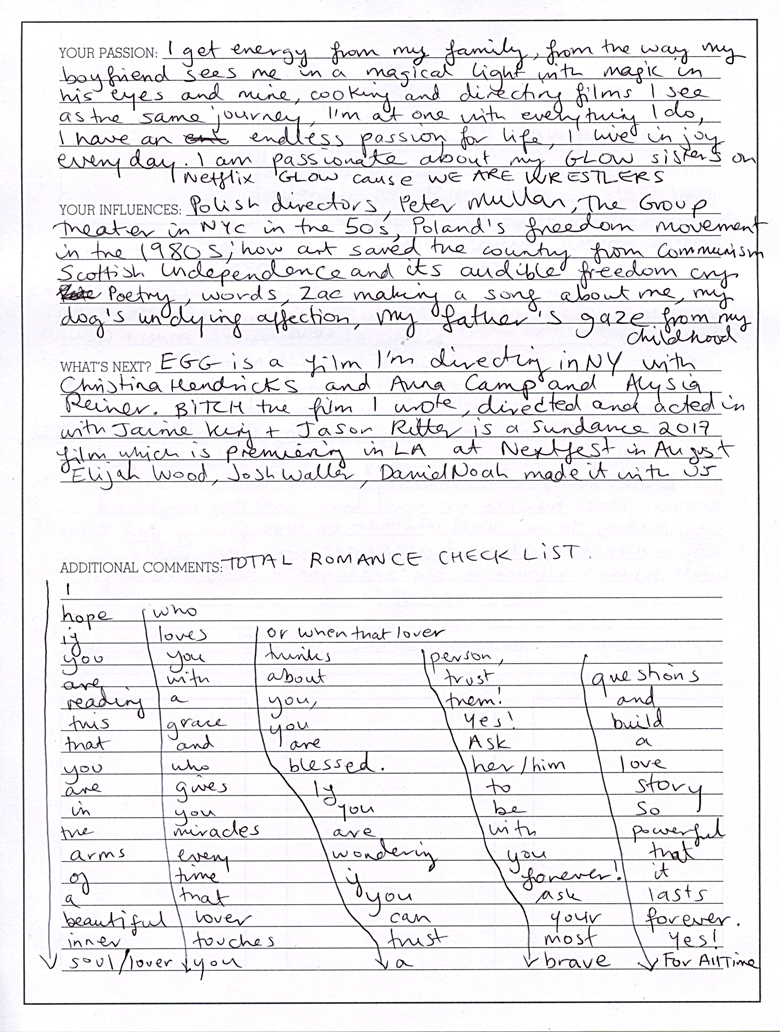 YOUR PASSION: I get energy from my family, from the way my
boyfriend sees me in a magical light with magic in
his eyes and mine, cooking and directing films I see
as the same journey, I'm at one with everything I do,
I have an endless passion for life, I live in joy
everyday. I am passionate about my GLOW sisters on
Netflix GLOW cause WE ARE WRESTLERS
YOUR INFLUENCES: Polish directors, Peter Mullan, The Group
theater in NYC in the 50s, Poland's freedom movement
in the 1980s, how art saved the country from Communism
Scottish Independence and its audible freedom cry
Poetry, words, Zac making a song about me, my
dog's undying affection, my father's gaze from my
childhood
WHAT'S NEXT? EGG is a film I'm directing in NY with
Christina Hendricks and Anna Camp and Alysia
Reiner. BITCH the film I wrote, directed and acted in
with Jaime King + Jason Ritter is a Sundance 2017
film which is premiering in LA at Nextfest in August
Elijah Wood, Josh Waller, Daniel Noah made it with us
ADDITIONAL COMMENTS: TOTAL ROMANCE CHECK LIST.
I
hope
if
you
are
reading
this
that
you
are
in
the
arms
of
a
beautiful
inner
soul/lover
who
loves
you
with
a
grace
and
who
gives
you
miracles
every
time
that
lover
touches
you
or when that lover
thinks
about
you,
you
are
blessed.
If
you
are
wondering
if
you
can
trust
a
person,
trust
them!
Yes!
Ask
her/him
to
be
with
you
forever!
ask
your
most
brave
questions
and
build
a
love
story
so
powerful
that
it
lasts
forever.
Yes!
For All Time